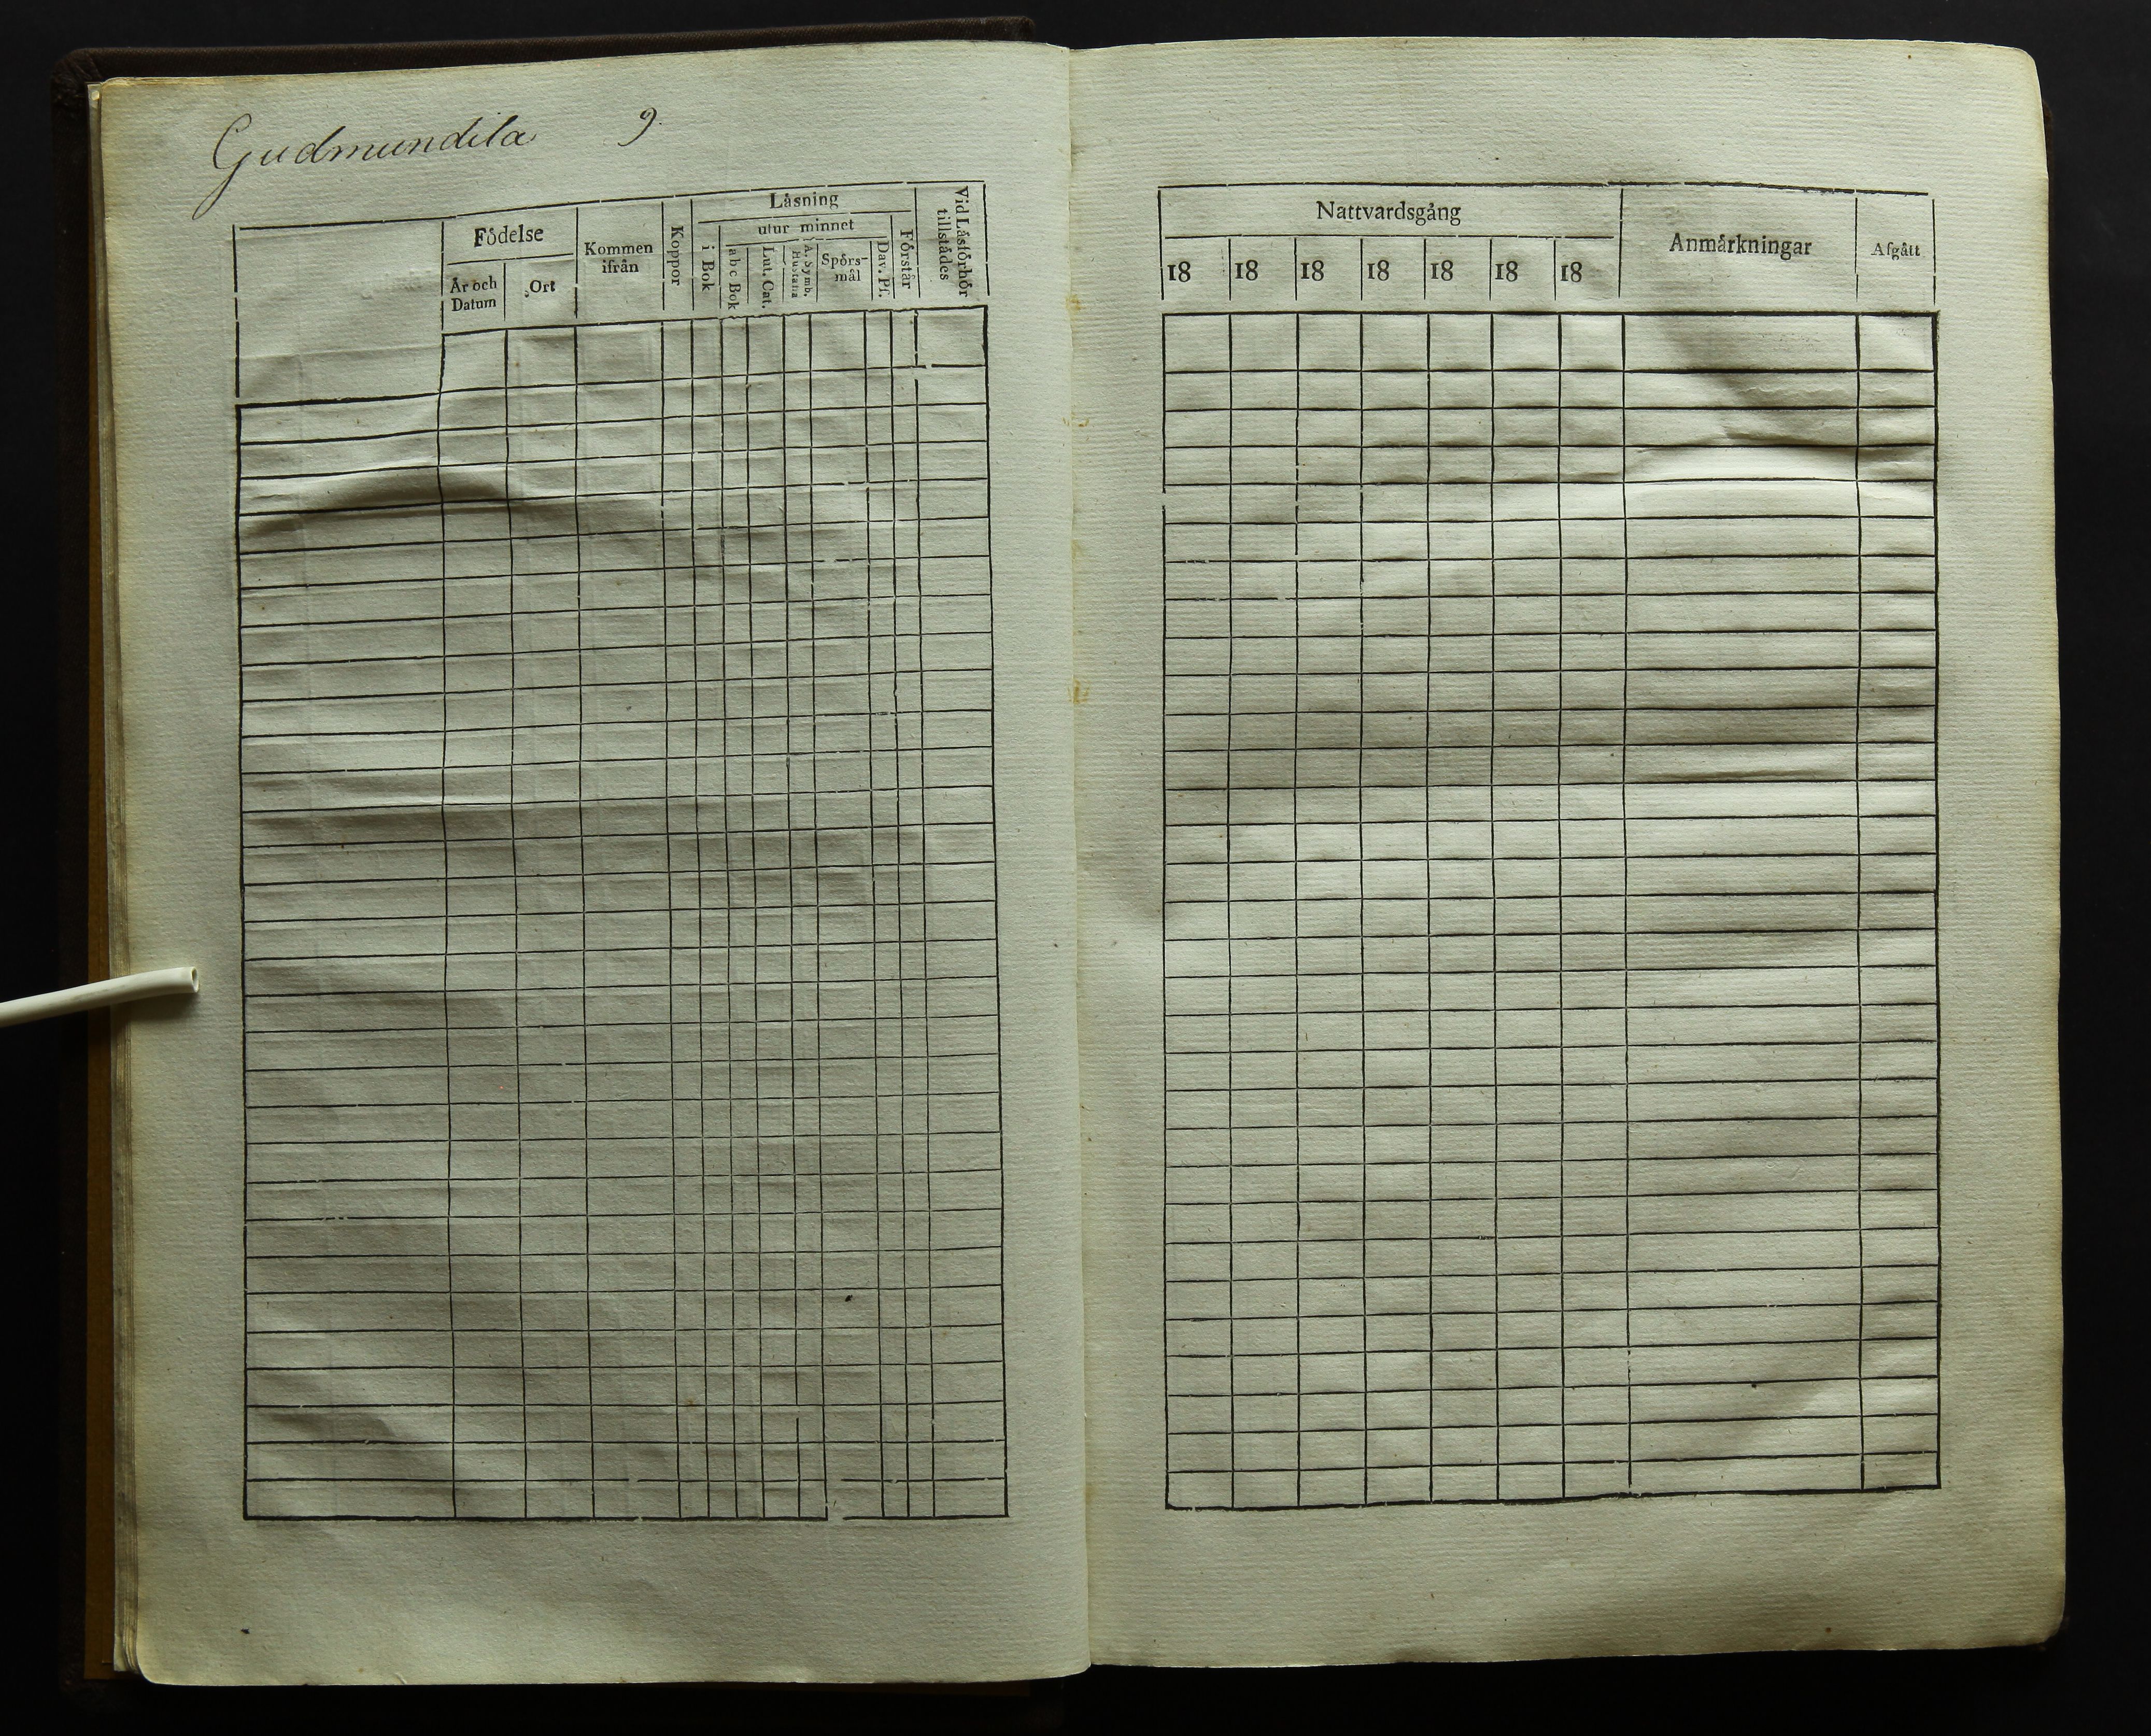 Gudmundila 9.
Födelse
År och Datum
Ort
Kommen ifrån
Koppor
Läsning
i Bok
utur minnet
abc Bok
Lut. Cat.
A. Symb. Hustafla
Spörs-
mål
Dav. Ps.
Förstår
Vid Läsförhör tillstädes
Nattvardsgång
18 18 18 18 18 18 18
Anmärkningar
Afgått